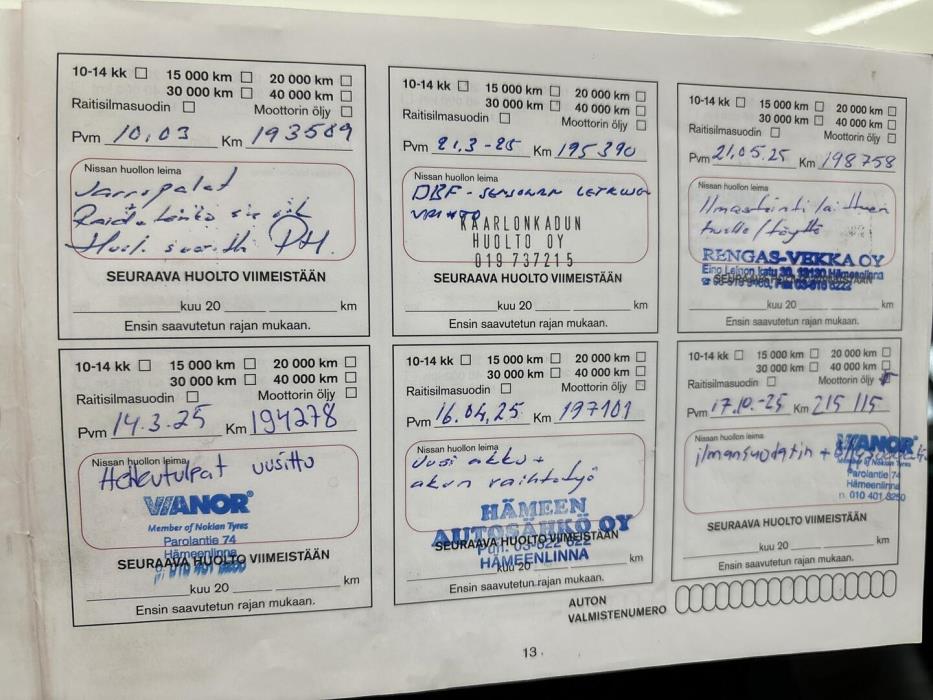 10-14 kk 15 000 km 20 000 km
30 000 km 40 000 km
Raitisilmasuodin Moottorin öljy
Pvm 10,03 Km 193589
Nissan huollon leima
Jarrupalat
SEURAAVA HUOLTO VIIMEISTÄÄN
kuu 20 km
Ensin saavutetun rajan mukaan.
10-14 kk 15 000 km 20 000 km
30 000 km 40 000 km
Raitisilmasuodin Moottorin öljy
Pvm 21,3-25 Km 195390
Nissan huollon leima
DBF-SENSORIN LETKUN
VAIHTO
KAARLONKADUN
HUOLTO OY
019 737215
SEURAAVA HUOLTO VIIMEISTÄÄN
kuu 20 km
Ensin saavutetun rajan mukaan.
10-14 kk 15 000 km 20 000 km
30 000 km 40 000 km
Raitisilmasuodin Moottorin öljy
Pvm 21,05.25 Km 198758
Nissan huollon leima
Ilmastointilaitteen
huolto/täyttö
RENGAS-VEKKA OY
Eino Leinon katu 30, 13130 Hämeenlinna
SEURAAVA HUOLTO VIIMEISTÄÄN
kuu 20 km
Ensin saavutetun rajan mukaan.
10-14 kk 15 000 km 20 000 km
30 000 km 40 000 km
Raitisilmasuodin Moottorin öljy
Pvm 14.3.25 Km 194278
Nissan huollon leima
Hehkutulpat uusittu
VIANOR
Member of Nokian Tyres
Parolantie 74
Hämeenlinna
SEURAAVA HUOLTO VIIMEISTÄÄN
kuu 20 km
Ensin saavutetun rajan mukaan.
10-14 kk 15 000 km 20 000 km
30 000 km 40 000 km
Raitisilmasuodin Moottorin öljy
Pvm 16.04,25 Km 197101
Nissan huollon leima
Uusi akku +
akun vaihtotyö
HÄMEEN
AUTOSÄHKÖ OY
SEURAAVA HUOLTO VIIMEISTÄÄN
Puh. 03-622 622
HÄMEENLINNA
kuu 20 km
Ensin saavutetun rajan mukaan.
10-14 kk 15 000 km 20 000 km
30 000 km 40 000 km
Raitisilmasuodin Moottorin öljy
Pvm 17.10.-25 Km 215 115
Nissan huollon leima
ilmansuodatin +
VIANOR
Member of Nokian Tyres
Parolantie 74
Hämeenlinna
p. 010 401 8250
SEURAAVA HUOLTO VIIMEISTÄÄN
kuu 20 km
Ensin saavutetun rajan mukaan.
AUTON
VALMISTENUMERO
13